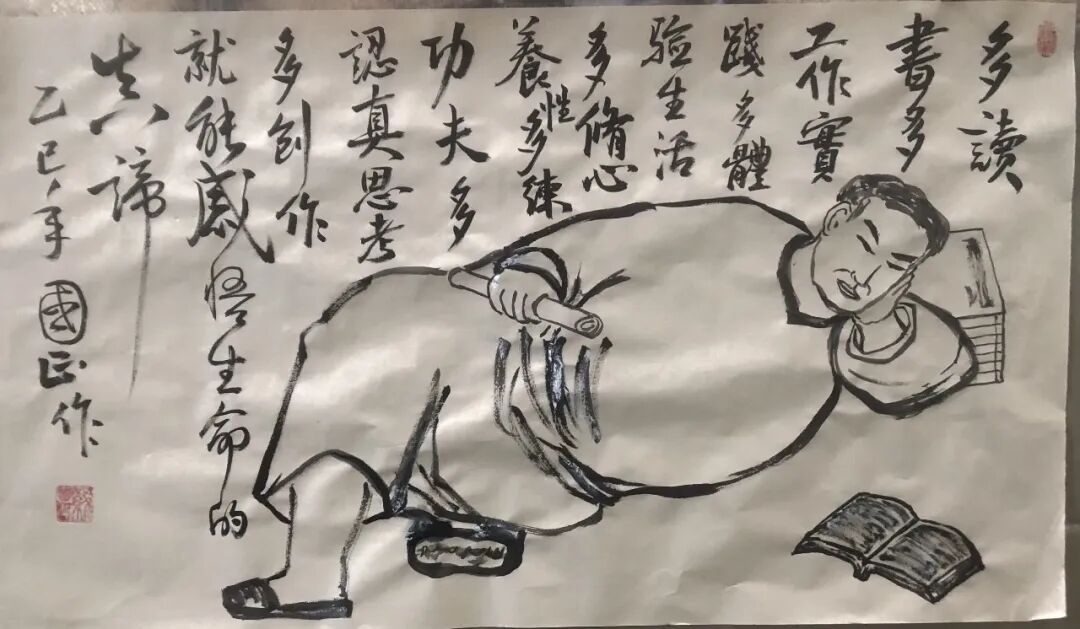 多讀
書多
工作實
踐多體
驗生活
多脩心
養性多練
功夫多
認真思考
多創作
就能感悟生命的
真諦
乙巳年
國正作